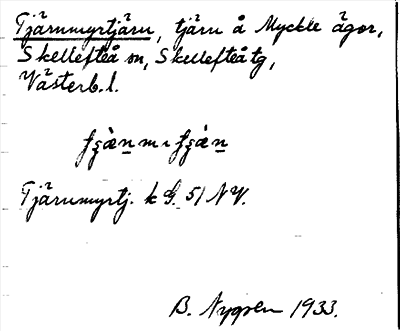 Tjärnmyrtjärn, tjärn å Myckle ägor,
Skellefteå sn, Skellefteå tg,
Västerb. l.
Tjärnmyrtj. k G. 51 NV.
B. Nygren 1933.